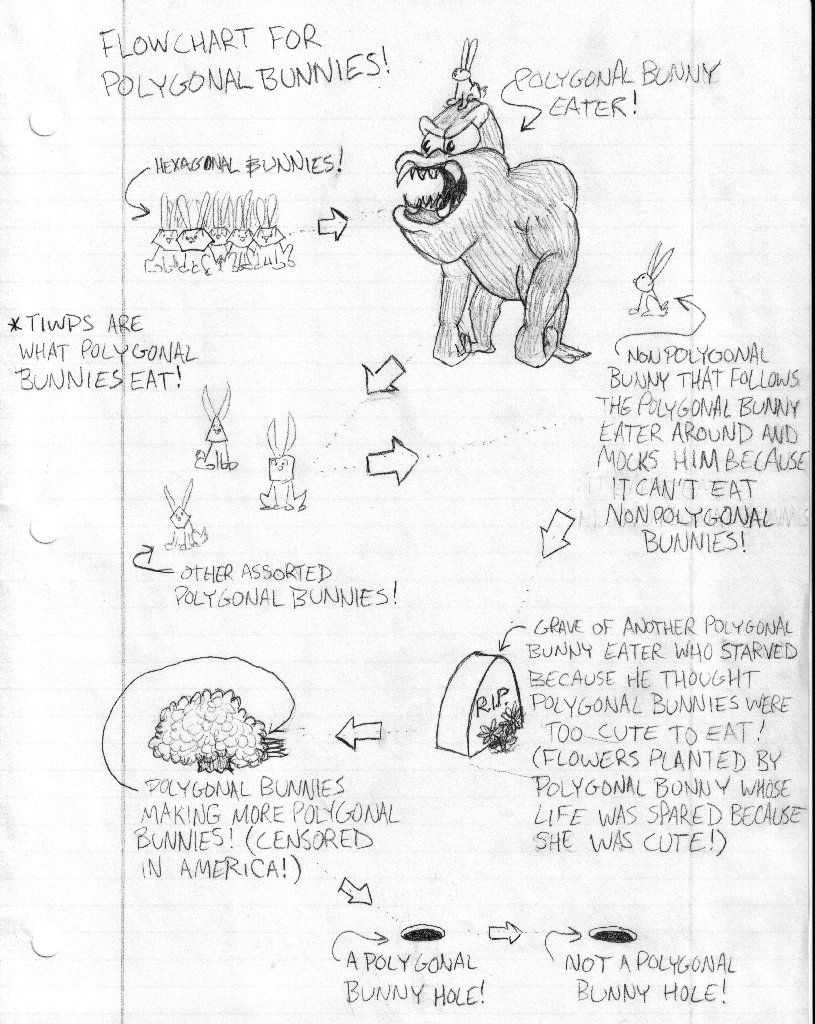 FLOWCHART FOR
POLYGONAL BUNNIES!
POLYGONAL BUNNY
EATER!
HEXAGONAL BUNNIES!
*TIWPS ARE
WHAT POLYGONAL
BUNNIES EAT!
NONPOLYGONAL
BUNNY THAT FOLLOWS
THE POLYGONAL BUNNY
EATER AROUND AND
MOCKS HIM BECAUSE
IT CAN'T EAT
NONPOLYGONAL
BUNNIES!
OTHER ASSORTED
POLYGONAL BUNNIES!
GRAVE OF ANOTHER POLYGONAL
BUNNY EATER WHO STARVED
BECAUSE HE THOUGHT
POLYGONAL BUNNIES WERE
TOO CUTE TO EAT!
(FLOWERS PLANTED BY
POLYGONAL BUNNY WHOSE
LIFE WAS SPARED BECAUSE
SHE WAS CUTE!)
R.I.P
POLYGONAL BUNNIES
MAKING MORE POLYGONAL
BUNNIES! (CENSORED
IN AMERICA!)
A POLYGONAL
BUNNY HOLE!
NOT A POLYGONAL
BUNNY HOLE!